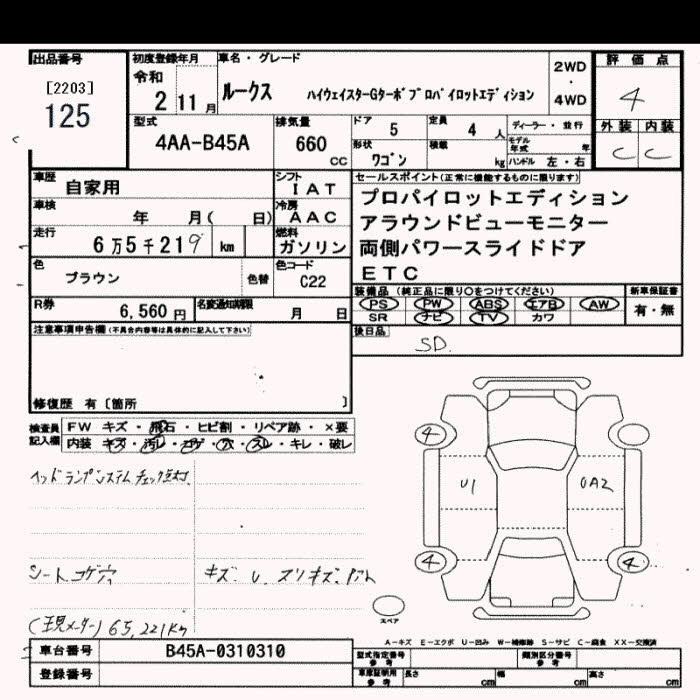 出品番号
[2203]
125
初度登録年月
令和
2 11 月
車名・グレード
ルークス ハイウェイスターGターボプロパイロットエディション
2WD
・
4WD
評価点
4
外装 内装
C C
型式
4AA-B45A
排気量
660
cc
ドア 5
定員 4 人
ディーラー・並行
モデル年式 年
形状 ワゴン
積載 kg
ハンドル 左・右
車歴 自家用
シフト IAT
車検 年 月( 日)
冷房 AAC
走行 6万5千219 km
燃料 ガソリン
色 ブラウン 色替
色コード C22
R券 6,560 円
名変通知期限 月 日
セールスポイント(正常に機能するものに限ります)
プロパイロットエディション
アラウンドビューモニター
両側パワースライドドア
ETC
装備品(純正品に限り○をつけてください)
PS PW ABS エアB AW
SR ナビ TV カワ
新車保証書
有・無
後日品
SD.
注意事項申告欄(不具合内容等は具体的に記入して下さい)
修復歴 有〔箇所 〕
検査員記入欄
FW キズ・飛石・ヒビ割・リペア跡・×要
内装 キズ・汚レ・コゲ・穴・スレ・キレ・破レ
ヘッドランプシステムチェック点灯
シートコゲ穴
キズ. U. スリキズ.
(現メーター) 65,221km
4
U1
UA2
4
4
スペア
A-キズ E-エクボ U-凹み W-補修跡 S-サビ C-腐食 XX-交換済
車台番号 B45A-0310310
登録番号
型式指定番号
参考
類別区分番号
参考
車庫証明用
参考
長さ cm 幅 cm 高さ cm